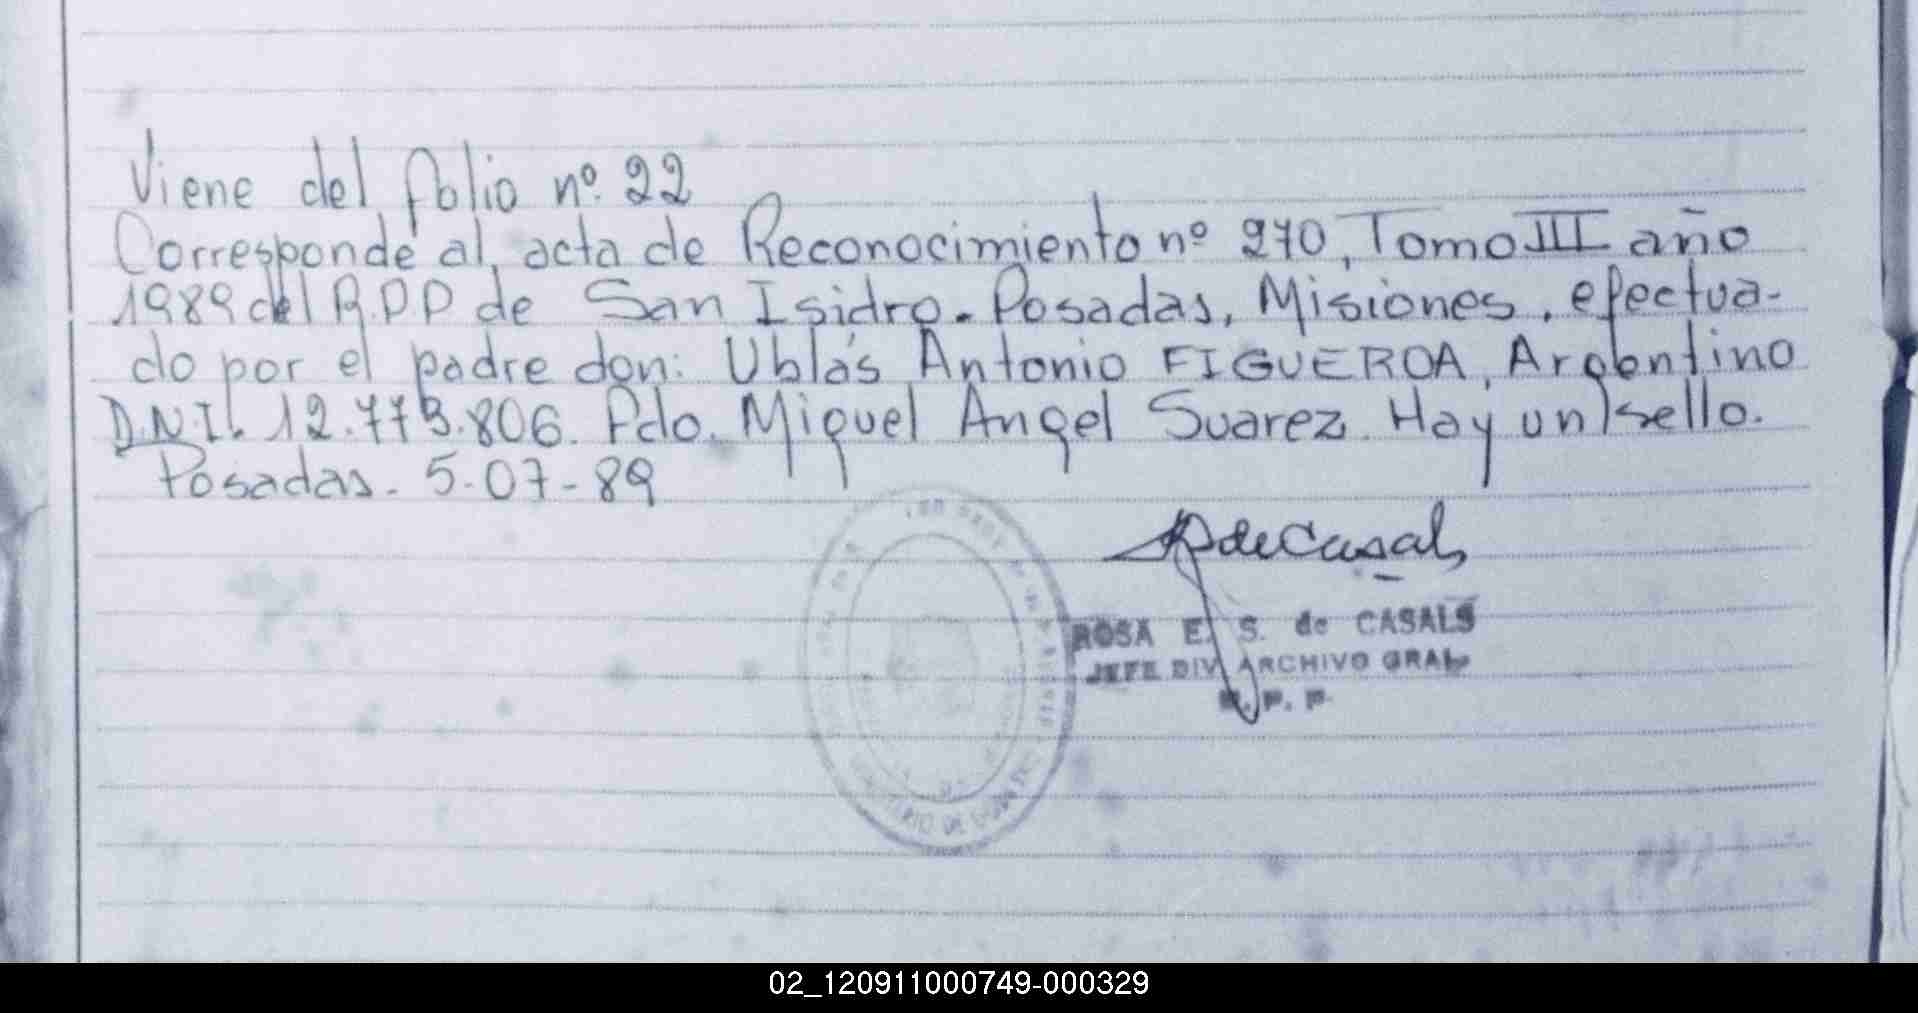 Viene del folio nº 22
Corresponde al acta de Reconocimiento nº 270, Tomo III año
1989 del R.P.P de San Isidro. Posadas, Misiones, efectua-
do por el padre don: Ublás Antonio FIGUEROA, Argentino
D.N.I. 12.773.806. Fdo. Miguel Angel Suarez. Hay un sello.
Posadas. 5-07-89
de Casals
ROSA E. S. de CASALS
JEFE DIV ARCHIVO GRAL
R. P. P
MINISTERIO DE
02_120911000749-000329